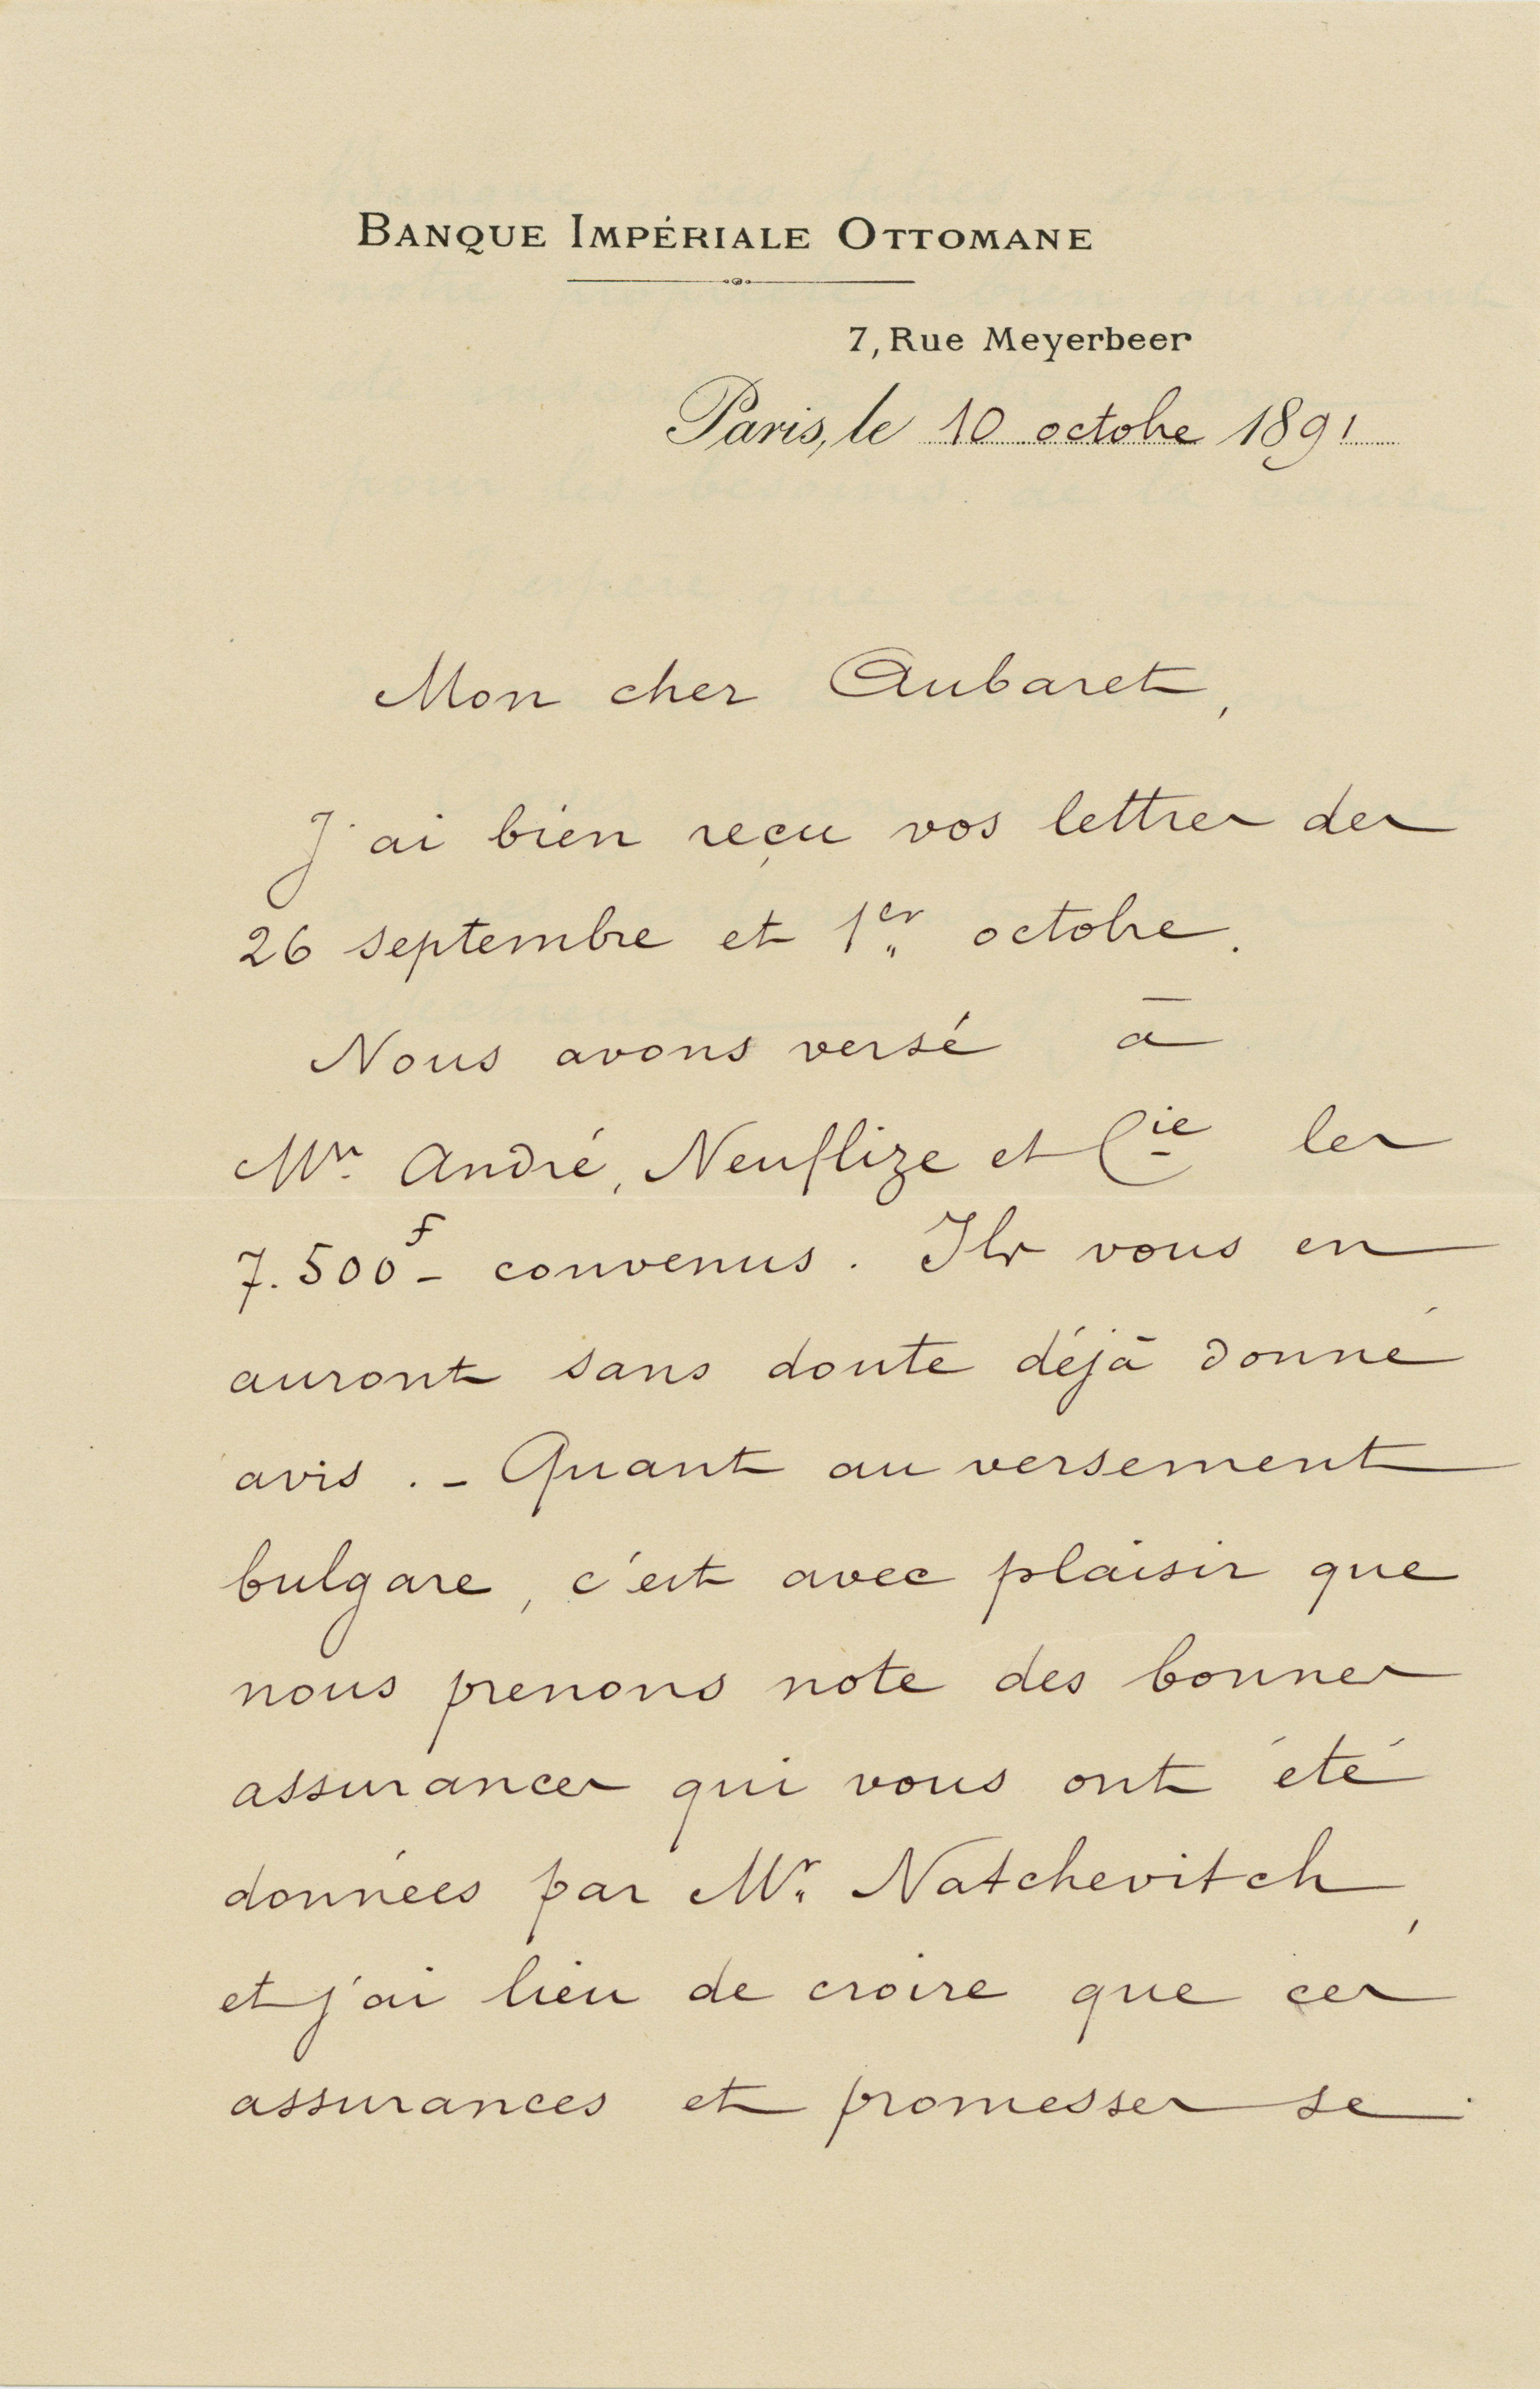 BANQUE IMPÉRIALE OTTOMANE
7, Rue Meyerbeer
Paris, le 10 octobre 1891
Mon cher Aubaret,
J'ai bien reçu vos lettres des
26 septembre et 1er octobre.
Nous avons versé à
Mrs André, Neuflize et Cie les
7.500f - convenus. Ils vous en
auront sans doute déjà donné
avis. - Quant au versement
bulgare, c'est avec plaisir que
nous prenons note des bonnes
assurances qui vous ont été
données par Mr. Natchevitch,
et j'ai lieu de croire que ces
assurances et promesses se